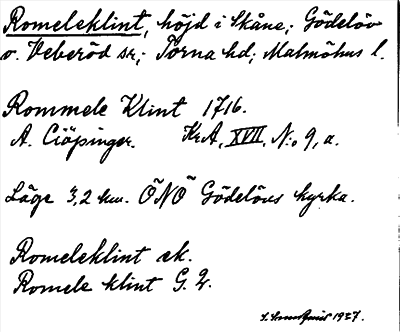 Romeleklint, höjd i Skåne; Gödelöv
o. Veberöd sr; Torna hd; Malmöhus l.
Rommele Klint 1716.
A. Ciöpinger. KrA, XVII, N:o 9, a.
Läge 3,2 km. ÖNÖ Gödelövs kyrka.
Romeleklint ek.
Romele klint G. 2.
1927.